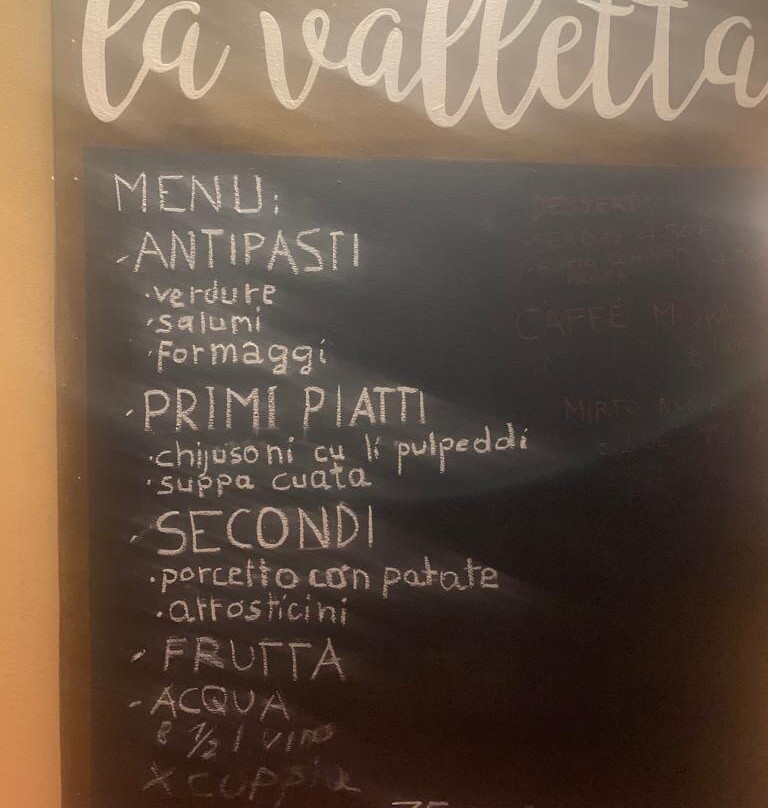 la valletta
MENU:
- ANTIPASTI
· verdure
· salumi
· formaggi
- PRIMI PIATTI
· chijusoni cu li pulpeddi
· suppa cuata
- SECONDI
· porcetto con patate
· arrosticini
- FRUTTA
- ACQUA
e 1/2 l vino
x coppia
35
DESSERT
CAFFÉ
MIRTO